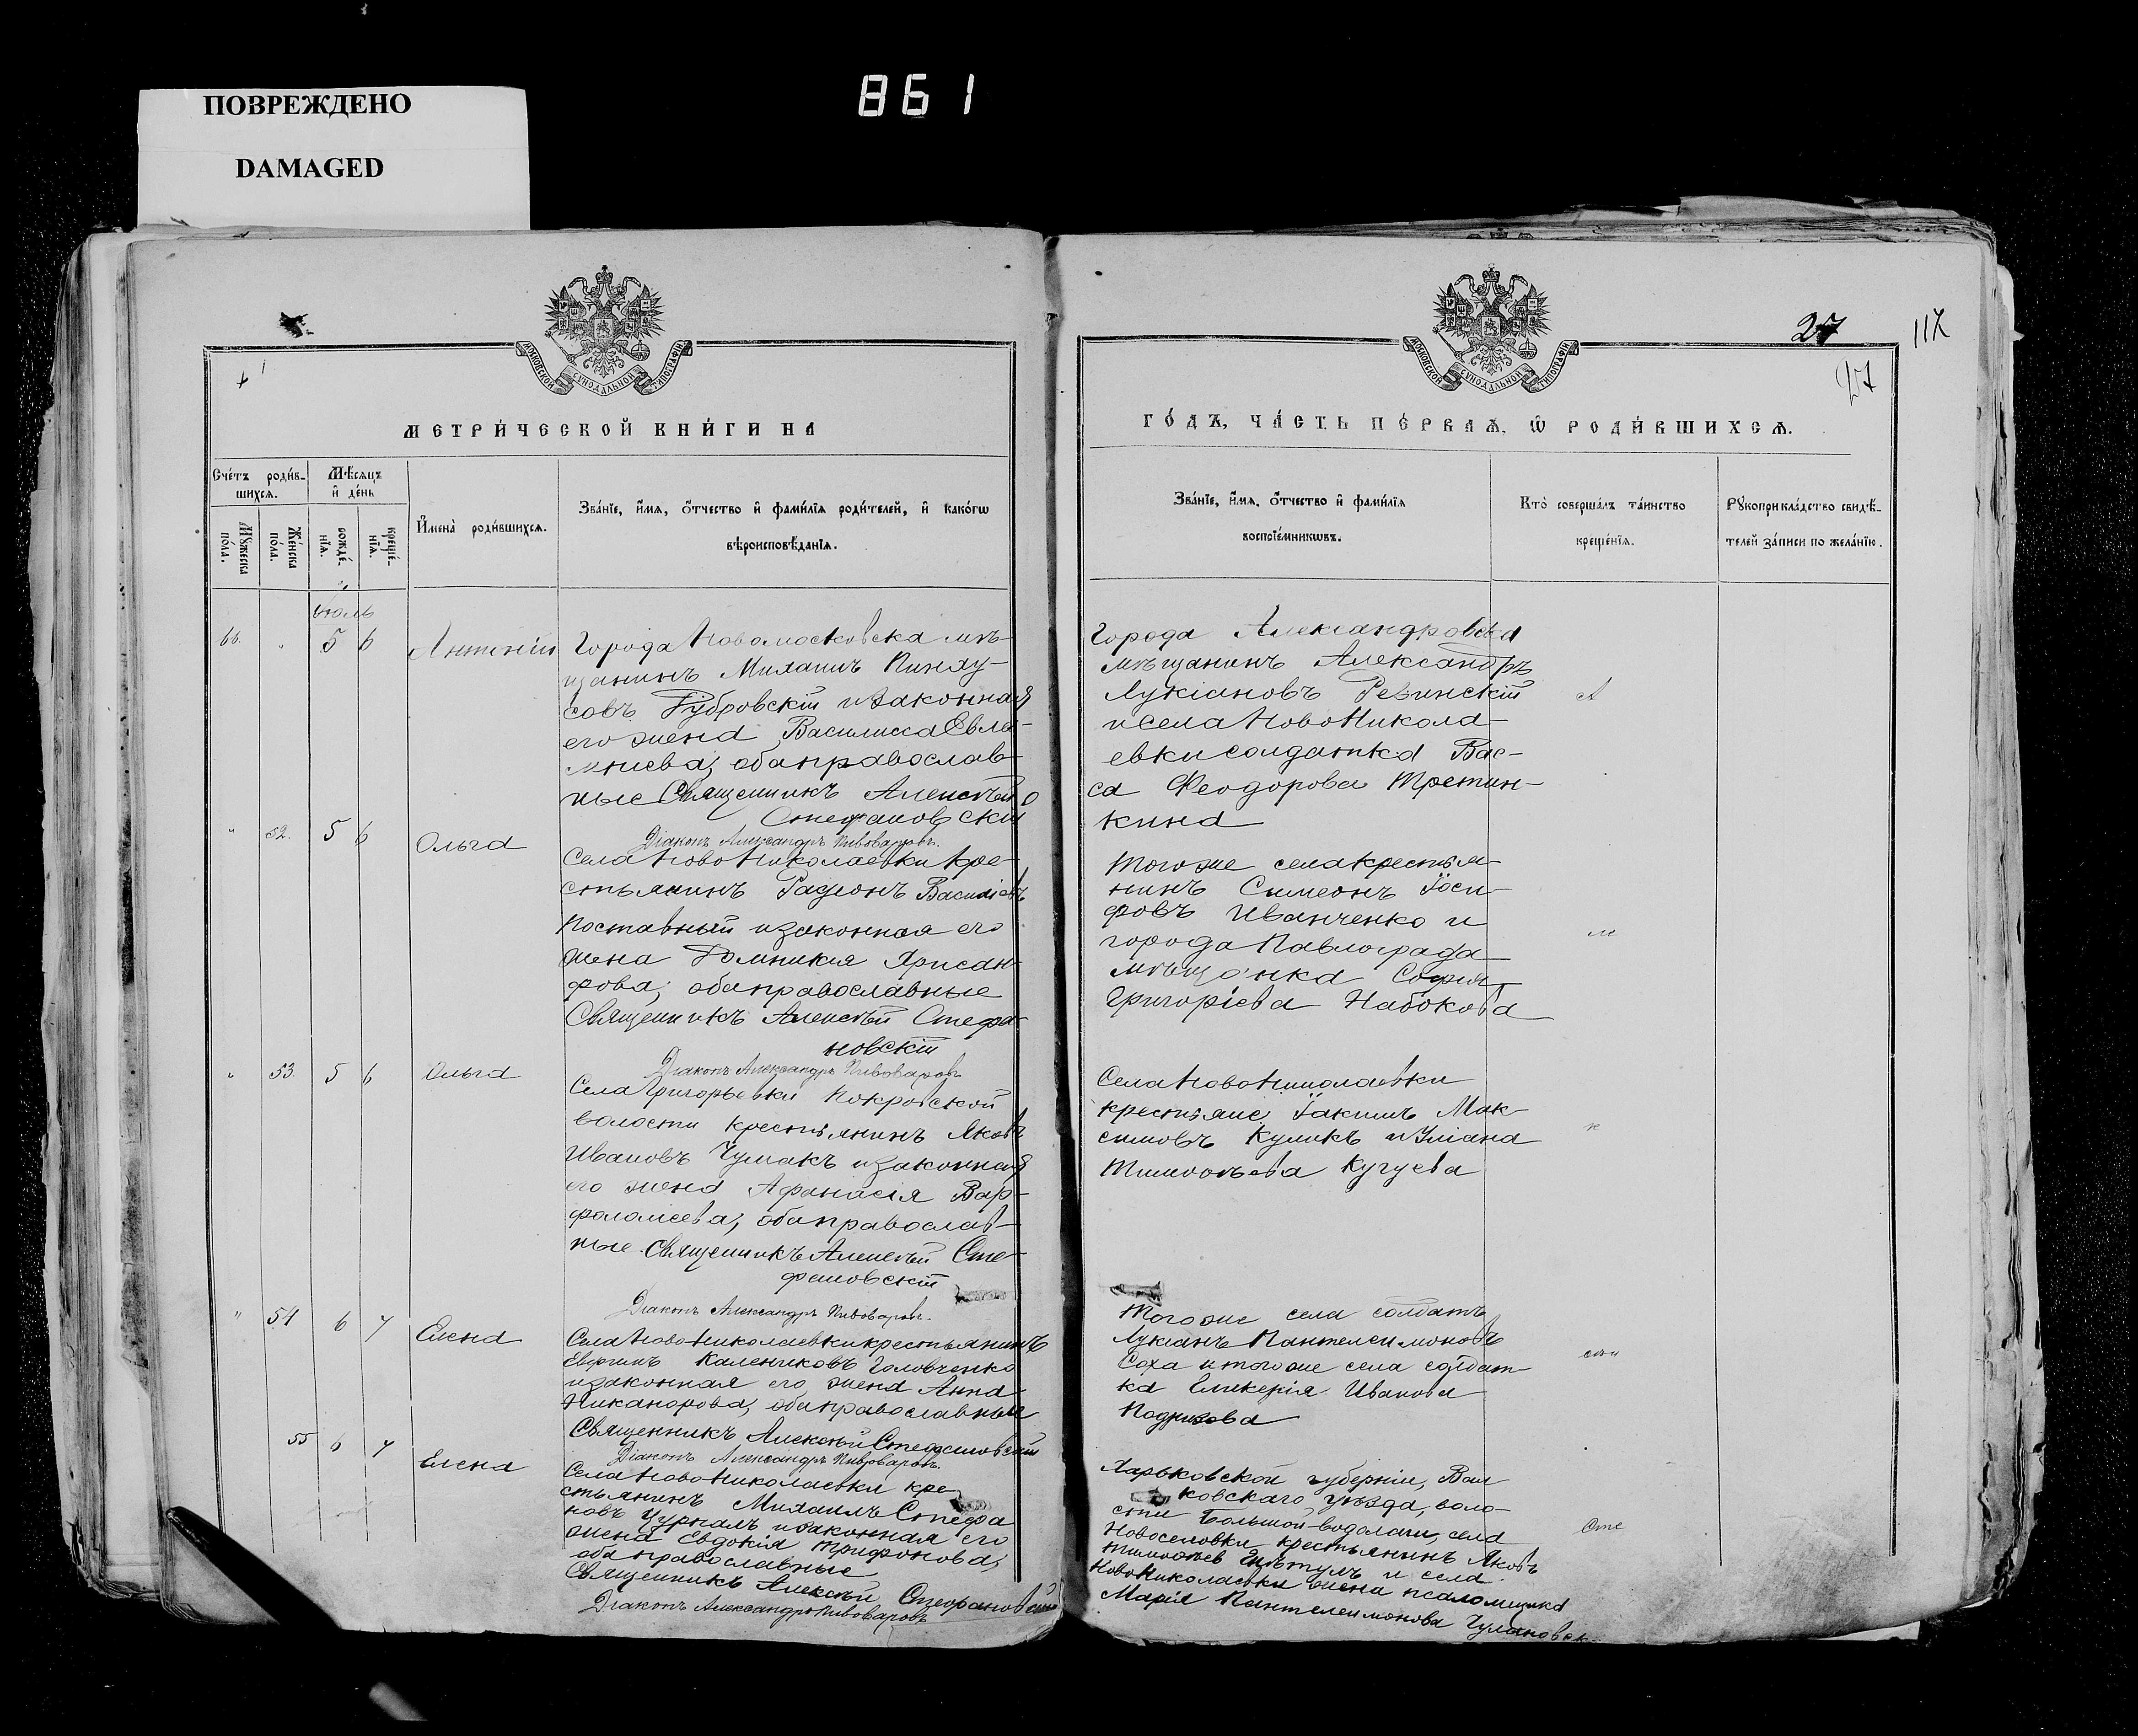 ПОВРЕЖДЕНО
DAMAGED
861
МОСКОВСКОЙ СѴНОДАЛЬНОЙ ТИПОГРАФІИ
МЕТРИ́ЧЕСКОЙ КНИ́ГИ НА
Сче́тъ роди́в-
шихсѧ.
Мѣ́сѧцъ
и҆ де́нь
Мꙋ́жеска
по́ла.
Же́нска
по́ла.
рожде́-
нїѧ.
креще́-
нїѧ.
И҆мена̀ роди́вшихсѧ.
Зва́нїе, и҆́мѧ, ѻ҆́тчество и҆ фами́лїѧ роди́телей, и҆ како́гѡ
вѣроисповѣ́данїѧ.
Іюль
66. " 5 6 Антоній
Города Новомосковска мѣ-
щанинъ Михаилъ Пинху-
совъ Дубровскій и законная
его жена Василисса Евла-
мпиева; оба православ-
ные Священникъ Алексѣй
Стефановскій
Діаконъ Александръ Пивоваровъ.
" 52. 5 6 Ольга
Села НовоНиколаевки кре-
стьянинъ Радіонъ Василіевъ
Поставный и законная его
жена Домникія Хрисан-
фова; оба православные
Священникъ Алексѣй Стефа-
новскій
Діаконъ Александръ Пивоваровъ
" 53 5 6 Ольга
Села Григорьевки Покровской
волости крестьянинъ Яковъ
Ивановъ Чумакъ и законная
его жена Афанасія Вар-
фоломеева; оба православ-
ные. Священникъ Алексѣй Сте-
фановскій
Діаконъ Александръ Пивоваровъ.
" 54 6 7 Елена
Села НовоНиколаевки крестьянинъ
Евфимъ Калениковъ Головченко
и законная его жена Анна
Никанорова; оба православные
Священникъ Алексѣй Стефановскій
Діаконъ Александръ Пивоваровъ.
55 6 7 Елена
Села НовоНиколаевки кре
стьянинъ Михаилъ Стефа
новъ и законная его
жена Евдокія Трифонова;
оба православные
Священникъ Алексѣй Стефановскій
Діаконъ Александръ Пивоваровъ
27
117
27
МОСКОВСКОЙ СѴНОДАЛЬНОЙ ТИПОГРАФІИ
ГО́ДЪ, ЧА́СТЬ ПЕ́РВАѦ, Ѡ҆ РОДИ́ВШИХСѦ.
Зва́нїе, и҆́мѧ, ѻ҆́тчество и҆ фами́лїѧ
воспрїе́мникѡвъ.
Кто̀ соверша́лъ та́инство
креще́нїѧ.
Рꙋкоприкла́дство свидѣ́-
телей за́писи по жела́нїю.
Города Александровска
мѣщанинъ Александръ
Лукіановъ Ревинскій
и села НовоНикола-
евки солдатка Вас-
са Феодорова Третин-
кина
Того же села крестья-
нинъ Симеонъ Іоси-
фовъ Иванченко и
города Павлограда
мѣщанка Софія
Григоріева Набокова
Села НовоНиколаевки
крестьяне Іакимъ Мак-
симовъ Куликъ и Уліана
Тимоѳеева Кугуева
Того же села солдатъ
Лукіанъ Пантелеимоновъ
Соха и того же села солдат-
ка Гликерія Иванова
Харьковской губерніи, Вал
ковскаго уѣзда, воло-
сти Большой-водолаги, села
Новоселовки крестьянинъ Яковъ
Тимоѳеев и села
НовоНиколаевки жена псаломщика
Марія Пантелеимонова